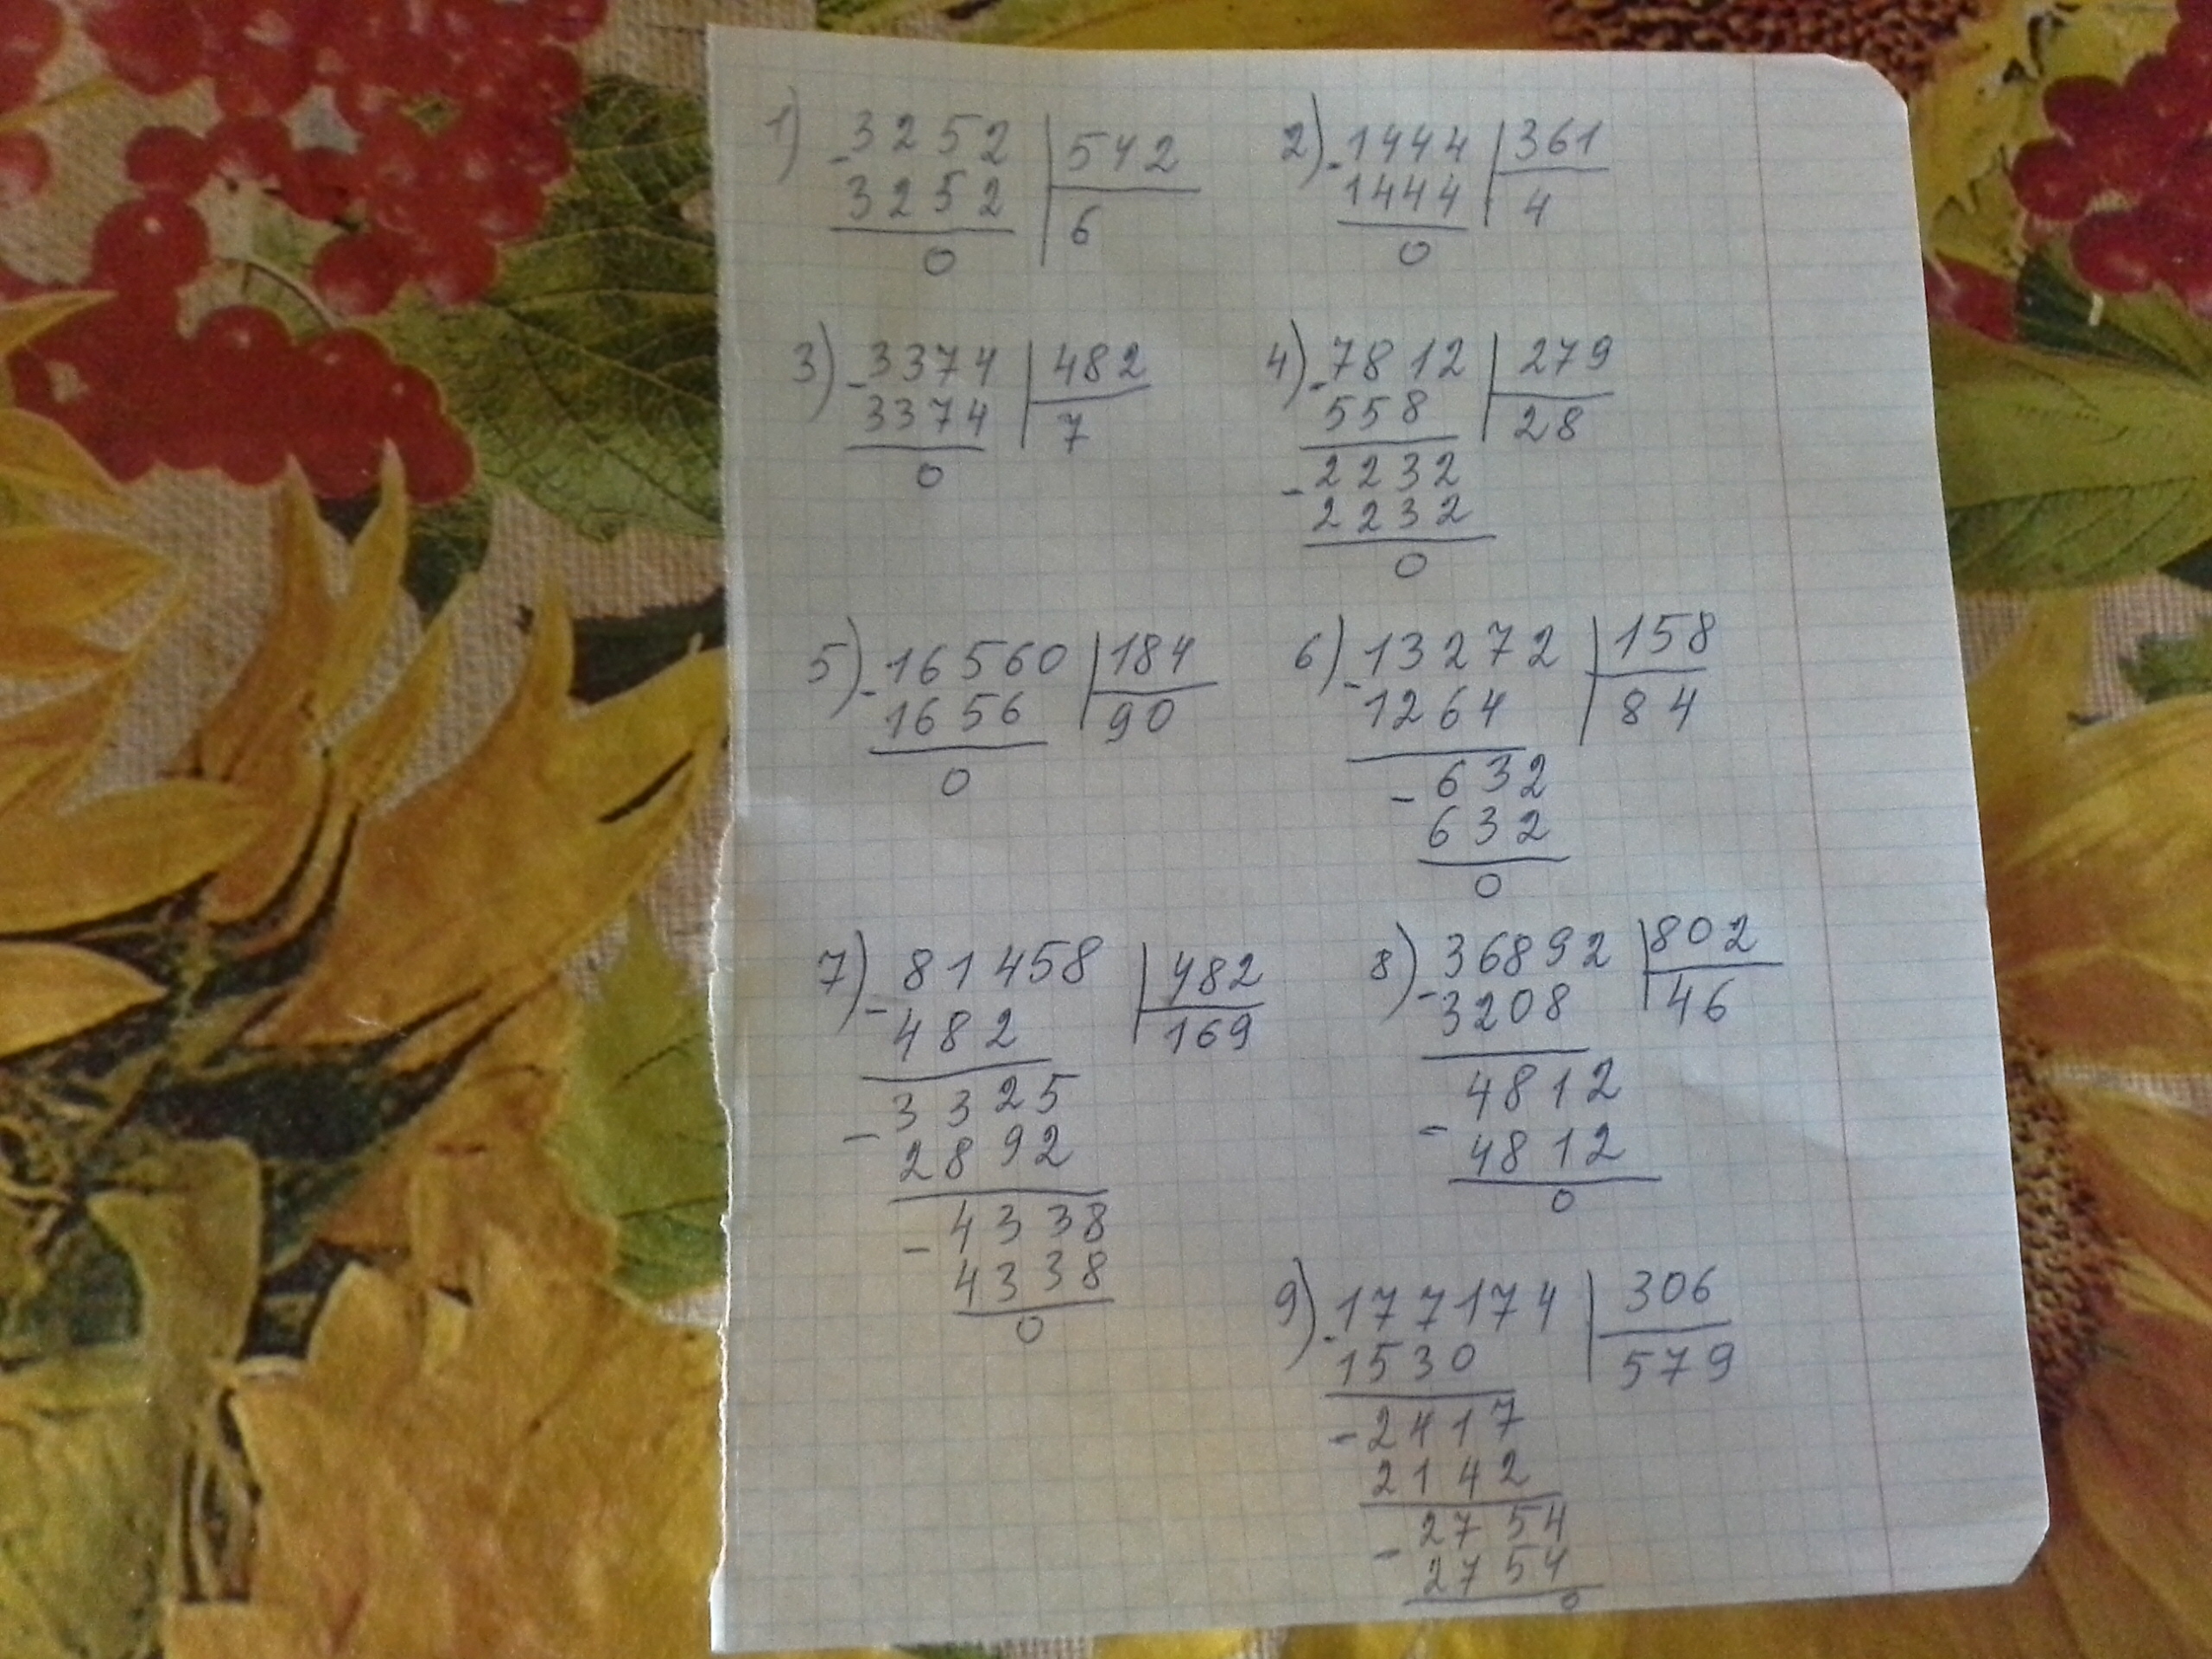 1) -3252 | 542
3252 | 6
0
2) -1444 | 361
1444 | 4
0
3) -3374 | 482
3374 | 7
0
4) -7812 | 279
558 | 28
-2232
2232
0
5) -16560 | 184
1656 | 90
0
6) -13272 | 158
1264 | 84
-632
632
0
7) -81458 | 482
482 | 169
-3325
2892
-4338
4338
0
8) -36892 | 802
3208 | 46
-4812
4812
0
9) -177174 | 306
1530 | 579
-2417
2142
-2754
2754
0